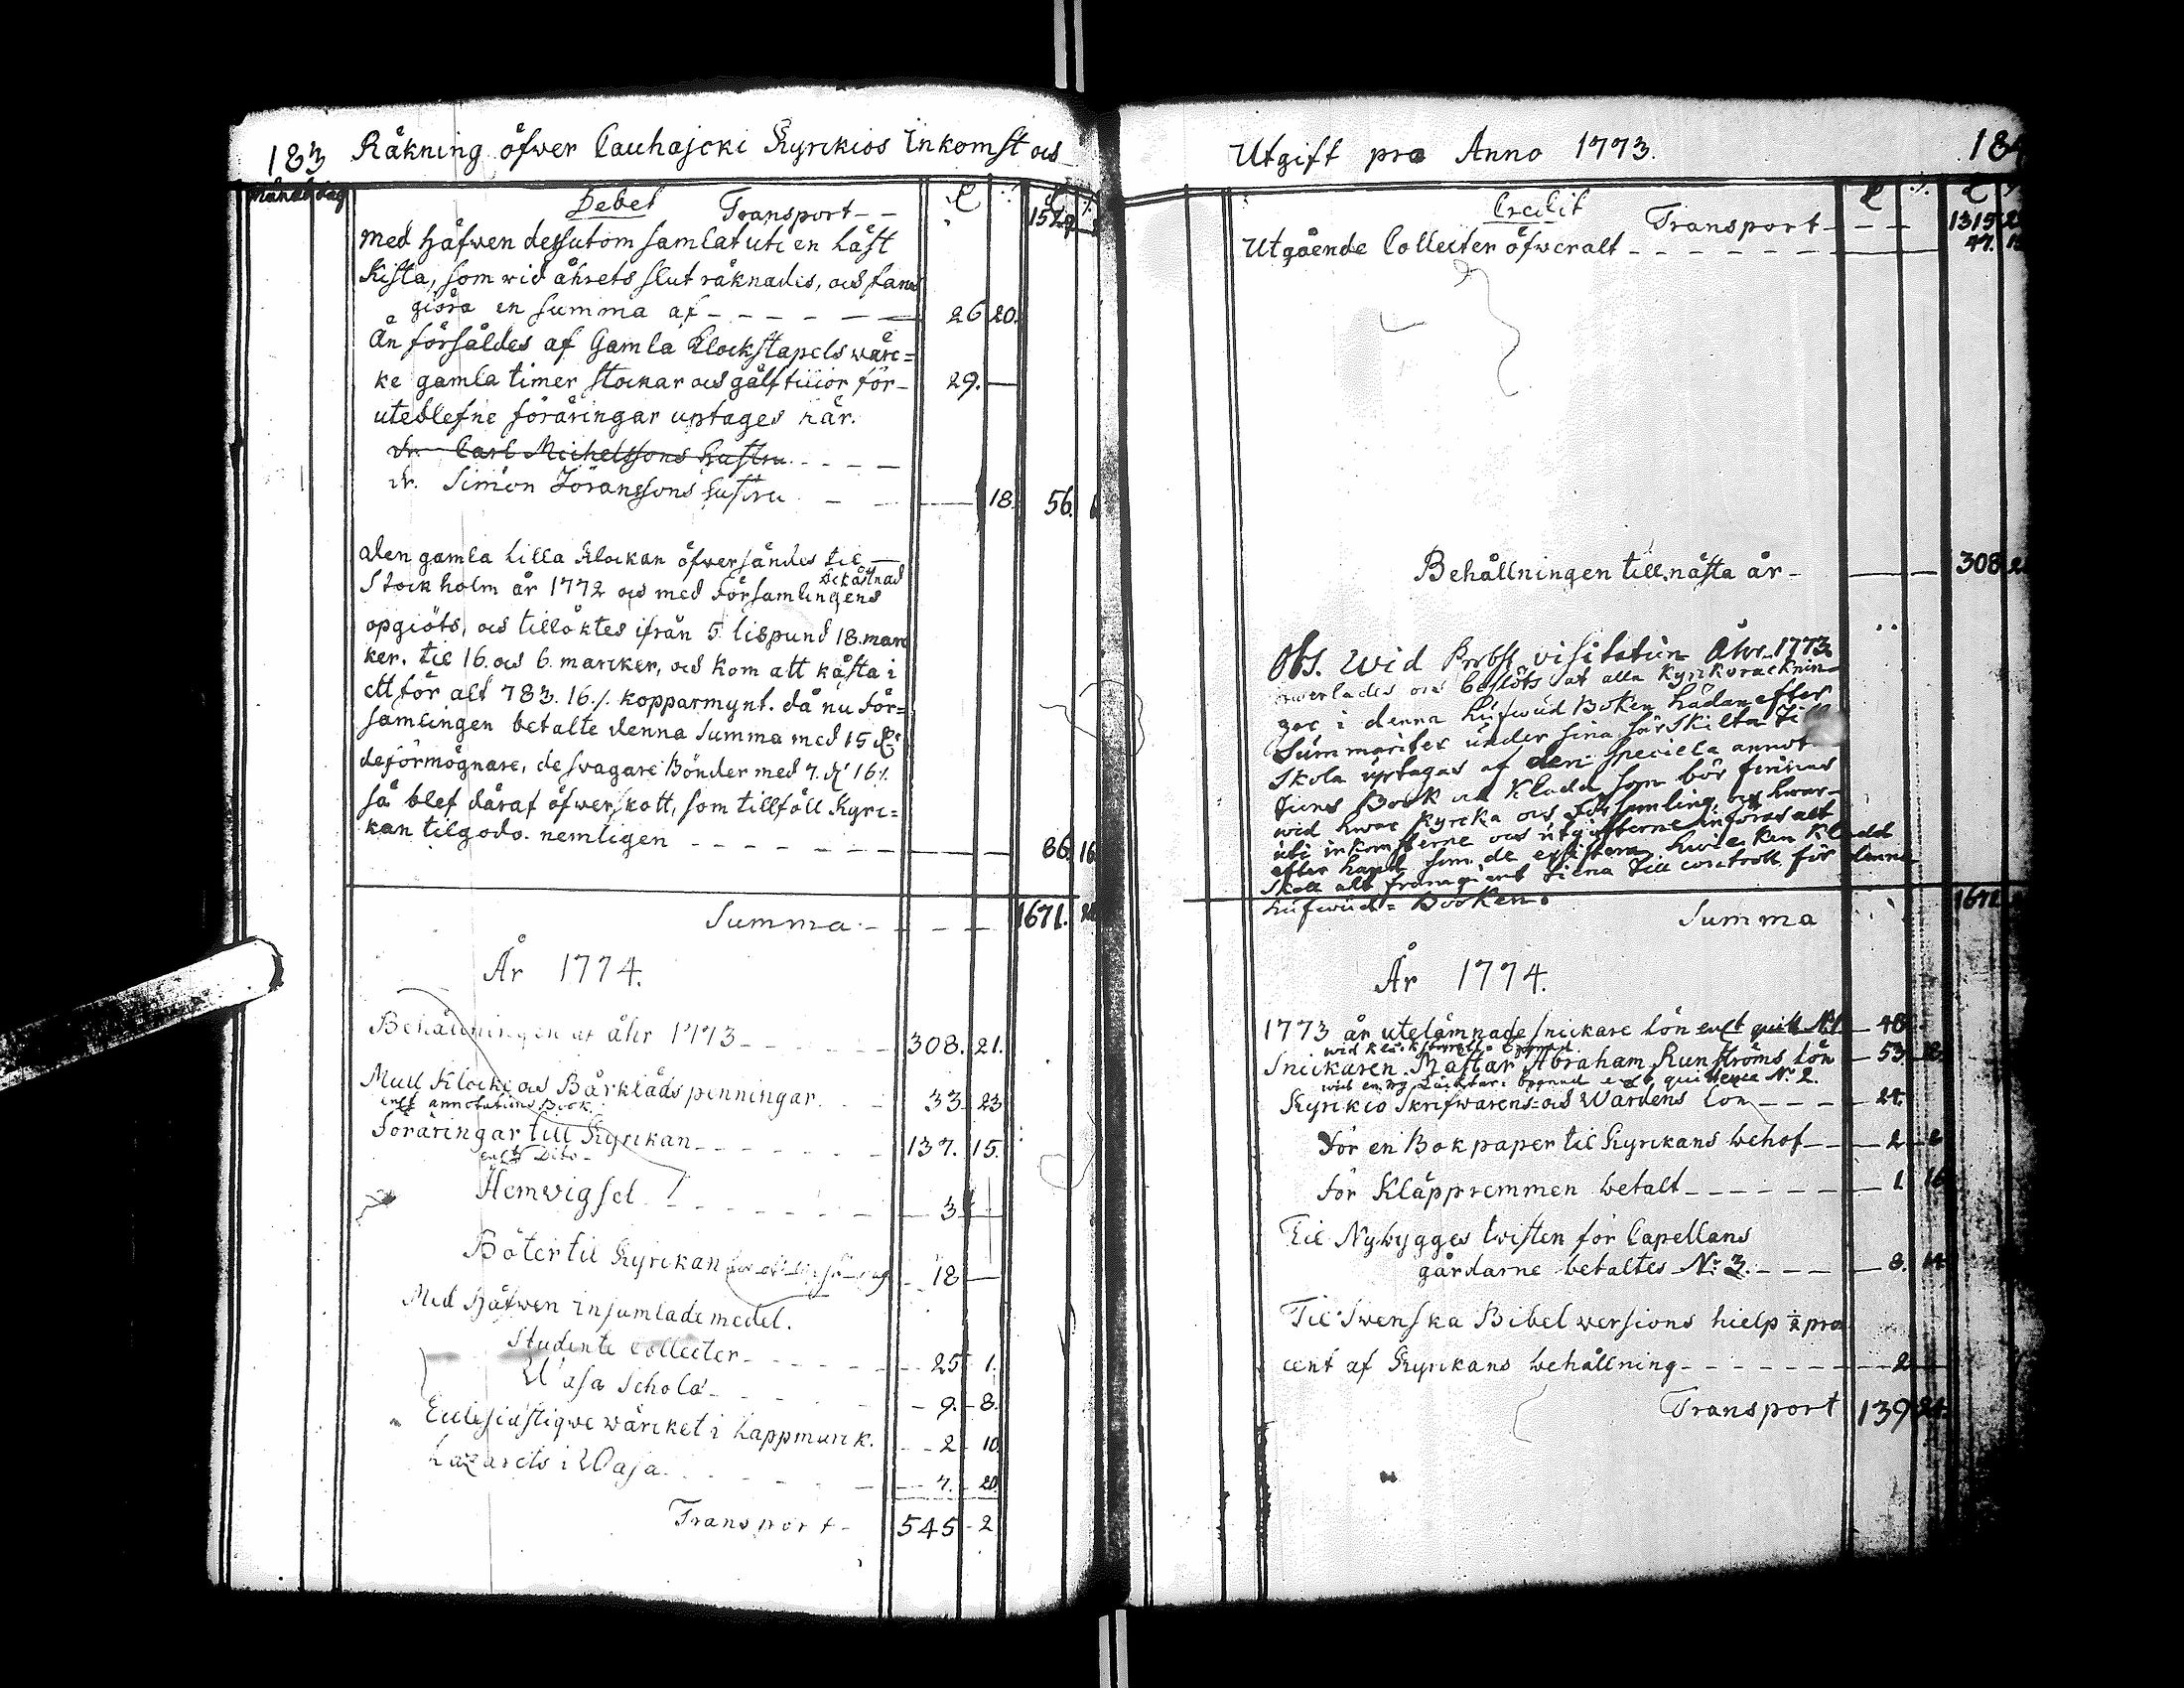 183 Räkning öfwer Cauhajocki Kyrckios Inkomst och
Månad dag
Debet Transport
Med Håfwen dessutom samlat uti en läst
Kista, som wid åhrets slut räknades, och fans
giöra en summa af 26 20.
Än försåldes af Gamla Klockstapels wärc=
ke gamla timer stockar och gålf tiiior för 29.
uteblefne föräringar uptages här.
dr. Carl Michelssons hustru
dr. Simon Jöranssons hustru 18. 56.
den gamla Lilla Klockan öfwersändes til
Stockholm år 1772 och med Församlingens bekåstnad
opgiöts, och tillöktes ifrån 5 lispund 18. marc
ker. til 16. och 6. marcker, och kom att kåsta i
ett för alt 783. 16./. kopparmynt. då nu För=
samlingen betalte denna summa med 15
de förmögnare, de swagare Bönder med 7. 16/.
så blef däraf öfwerskott, som tillföll Kyrc=
kan til godo. nemligen 86. 16
Summa 1671.
År 1774.
Behållningen af åhr 1773 308. 21.
Mull Klocke och Bårklåds penningar 33 23
enl annotations Book
Föräringar till Kyrckan 137. 15.
enl Dito
Hemwigsel 3
Böter til Kyrckan 18
Med Håfwen insamlade medel.
Studente collecter 25 1.
Wasa Schola 9. 8.
Ecclesiastiqve wärcket i Lappmarck. 2 10
Lazarets i Wasa 7. 20.
Transport 545 2
Utgift pro Anno 1773. 184
Credit Transport 1315
Utgående Collecter öfweralt 47.
Behållningen till nästa år 308
Obs. Wid Probst visitation Åhr 1773
och beslöts at alla Kyrkoräcknin
gar i denna Hufwud Boken hädanefter
Summariter under sina särskilta
Skola uptagas af den speciela annot
tions Book och Kladd som bör finnas
wid hwar Kyrcka och Församling, och hwar
uti inkomsterne och utgifterne införas alt
efter hand som de existera, hwilken Kladd
Skall alt framgient tiena till controll för denna
Hufwud= Booken.
Summa 1671
År 1774.
1773 år utelämnade snickare lön enl quitt N:1 48
wid klockstapels bygnad
Snickaren Mästar Abraham Runströms lön 53
quittence N:o 2.
Kyrckio Skrifwarens och Wardens lön 24.
För en Bok paper til Kyrckans behof 2
för Kläppremmen betalt 1. 16
Til Nybygges twisten för Capellans
gårdarne betaltes N:o 3. 8.
Til Swenska Bibel versions hielp ½ pro
cent af Kyrckans behållning 2
Transport 139